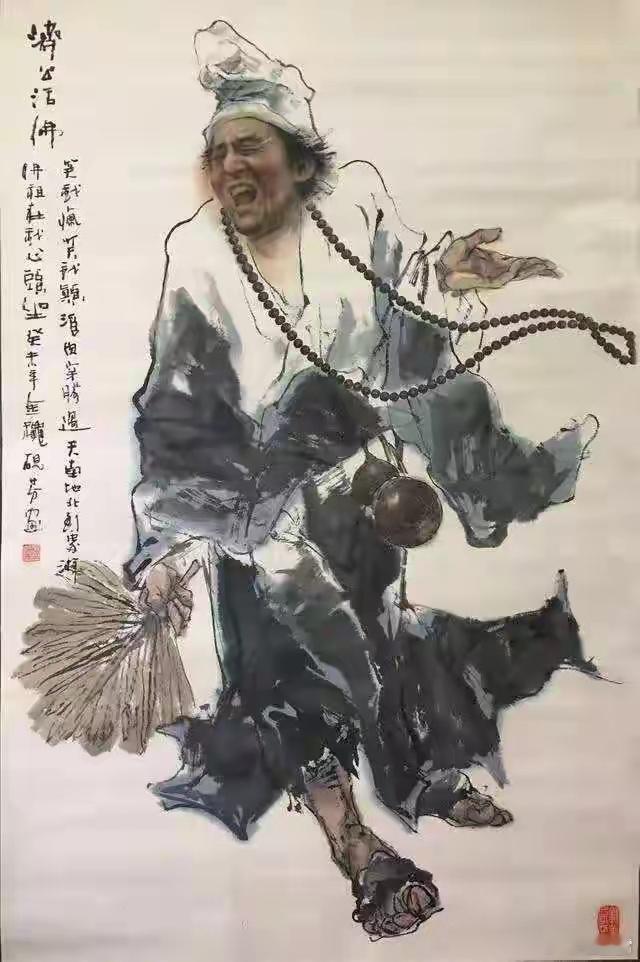 濟公活佛
笑我瘋笑我顛酒肉穿腸過天南地北到處游
佛祖在我心頭坐癸未年硯芳畫